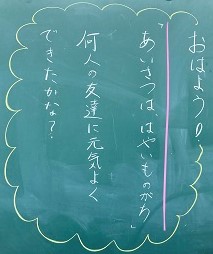 おはよう!
「あいさつは、はやいものがち」
何人の友達に元気よく
できたかな?